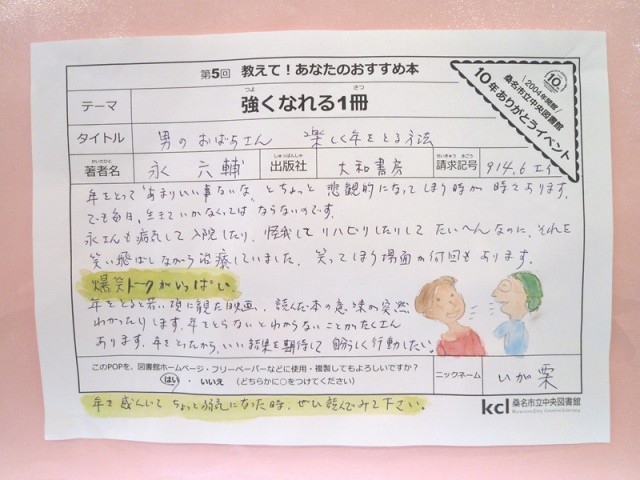 第5回 教えて！あなたのおすすめ本
＼2004年開館／
桑名市立中央図書館
10年ありがとうイベント
10
テーマ
強くなれる1冊
つよ
さつ
タイトル
男のおばあさん 楽しく年をとる方法
著者名
永 六輔
出版社
しゅっぱんしゃ
大和書房
請求記号
せいきゅう きごう
914.6 エイ
年をとって"あまりいい事ないな"とちょっと悲観的になってしまう時が時々あります。
でも毎日、生きていかなくてはならないのです。
永さんも病気して入院したり、怪我してリハビリしたりしてたいへんなのに、それを
笑い飛ばしながら治療していました。笑ってしまう場面が何回もあります。
爆笑トークがいっぱい。
年をとると若い頃に観た映画、読んだ本の意味が突然
わかったりします。年をとらないとわからないことがたくさん
あります。年をとったから、いい結果を期待して自分らしく行動したい。
このPOPを、図書館ホームページ・フリーペーパーなどに使用・複製してもよろしいですか？
はい ・ いいえ （どちらかに○をつけてください）
ニックネーム
いが栗
年を感んじてちょっと弱気になった時、ぜひ読んでみて下さい。
kcl 桑名市立中央図書館
Kuwana City Central Library